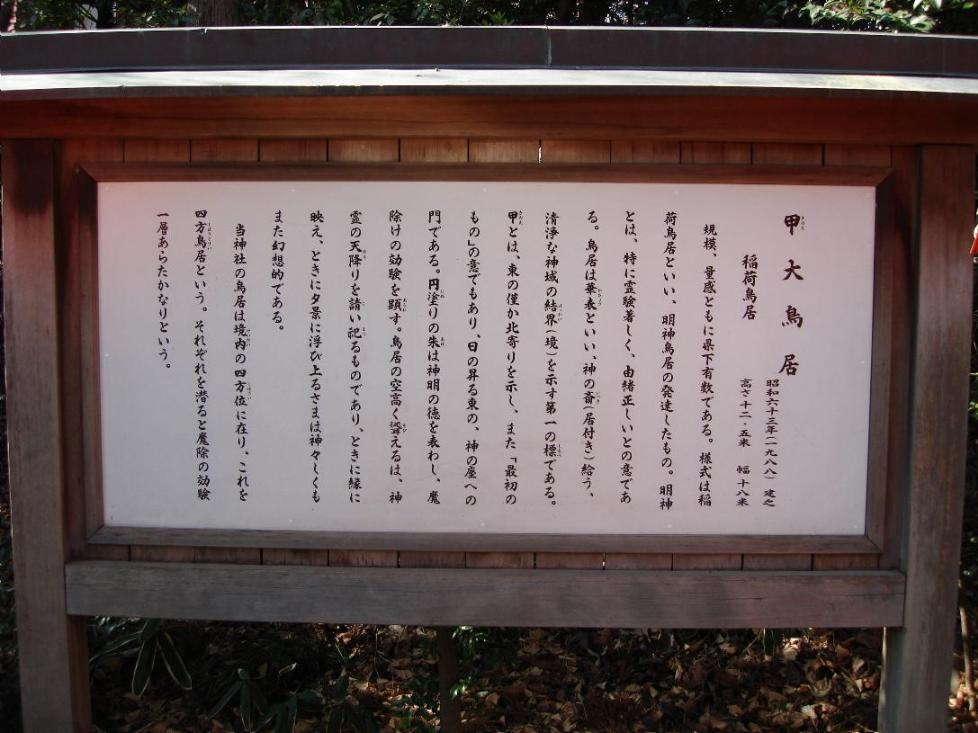 甲大鳥居
昭和六十三年(一九八八)建之
稲荷鳥居
高さ十二・五米 幅十八米
規模、量感ともに県下有数である。様式は稲
荷鳥居といい、明神鳥居の発達したもの。明神
とは、特に霊験著しく、由緒正しいとの意であ
る。鳥居は華表といい、神の斎(居付き)給う、
清浄な神域の結界(境)を示す第一の標である。
甲とは、東の僅か北寄りを示し、また「最初の
もの」の意でもあり、日の昇る東の、神の座への
門である。円塗りの朱は神明の徳を表わし、魔
除けの効験を顕す。鳥居の空高く聳えるは、神
霊の天降りを請い祀るものであり、ときに緑に
映え、ときに夕景に浮び上るさまは神々しくも
また幻想的である。
当神社の鳥居は境内の四方位に在り、これを
四方鳥居という。それぞれを潜ると魔除の効験
一層あらたかなりという。